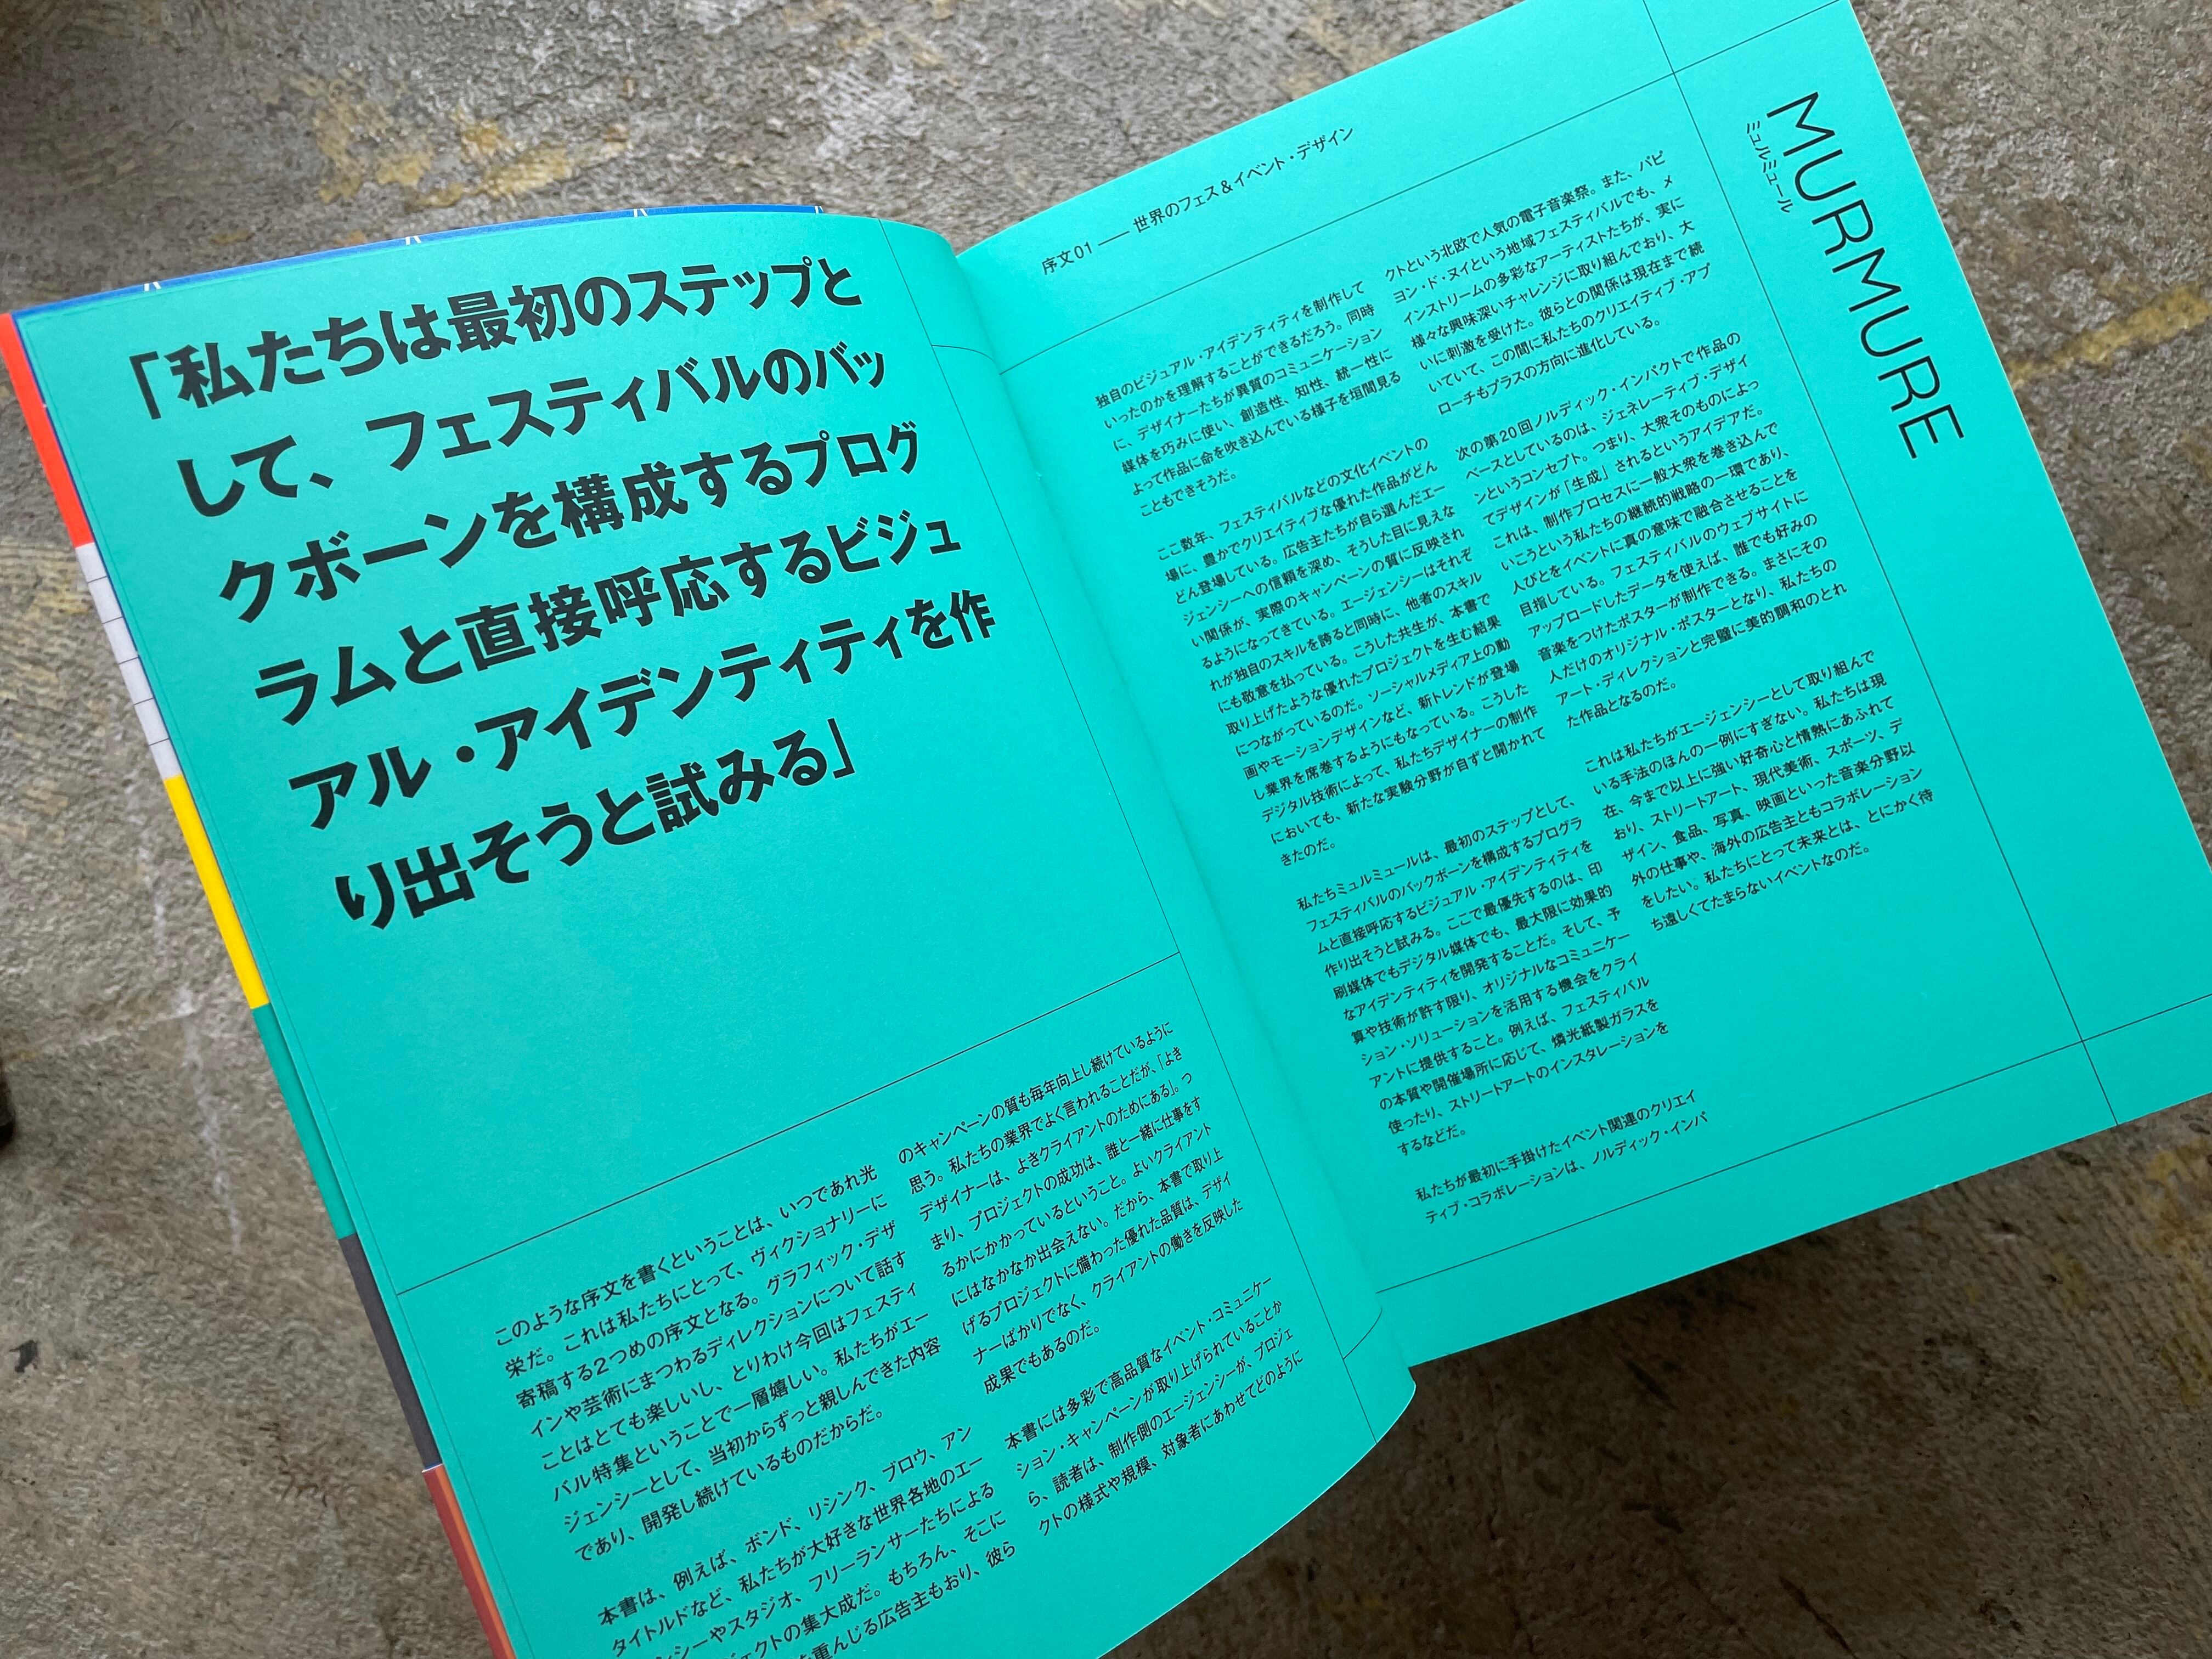 「私たちは最初のステップと
して、フェスティバルのバッ
クボーンを構成するプログ
ラムと直接呼応するビジュ
アル・アイデンティティを作
り出そうと試みる」
このような序文を書くということは、いつであれ光
栄だ。これは私たちにとって、ヴィクショナリーに
寄稿する2つめの序文となる。グラフィック・デザ
インや芸術にまつわるディレクションについて話す
ことはとても楽しいし、とりわけ今回はフェスティ
バル特集ということで一層嬉しい。私たちがエー
ジェンシーとして、当初からずっと親しんできた内容
であり、開発し続けているものだからだ。
本書は、例えば、ボンド、リシンク、ブロウ、アン
タイトルドなど、私たちが大好きな世界各地のエー
ンシーやスタジオ、フリーランサーたちによる
ジェクトの集大成だ。もちろん、そこに
を重んじる広告主もおり、彼ら
のキャンペーンの質も毎年向上し続けているように
思う。私たちの業界でよく言われることだが、「よき
デザイナーは、よきクライアントのためにある」。つ
まり、プロジェクトの成功は、誰と一緒に仕事をす
るかにかかっているということ。よいクライアント
にはなかなか出会えない。だから、本書で取り上
げるプロジェクトに備わった優れた品質は、デザイ
ナーばかりでなく、クライアントの働きを反映した
成果でもあるのだ。
本書には多彩で高品質なイベント・コミュニケー
ション・キャンペーンが取り上げられていることか
ら、読者は、制作側のエージェンシーが、プロジェ
クトの様式や規模、対象者にあわせてどのように
序文01 ―― 世界のフェス＆イベント・デザイン
MURMURE
ミュルミュール
独自のビジュアル・アイデンティティを制作して
いったのかを理解することができるだろう。同時
に、デザイナーたちが異質のコミュニケーション
媒体を巧みに使い、創造性、知性、統一性に
よって作品に命を吹き込んでいる様子を垣間見る
こともできそうだ。
ここ数年、フェスティバルなどの文化イベントの
場に、豊かでクリエイティブな優れた作品がどん
どん登場している。広告主たちが自ら選んだエー
ジェンシーへの信頼を深め、そうした目に見えな
い関係が、実際のキャンペーンの質に反映され
るようになってきている。エージェンシーはそれぞ
れが独自のスキルを誇ると同時に、他者のスキル
にも敬意を払っている。こうした共生が、本書で
取り上げたような優れたプロジェクトを生む結果
につながっているのだ。ソーシャルメディア上の動
画やモーションデザインなど、新トレンドが登場
し業界を席巻するようにもなっている。こうした
デジタル技術によって、私たちデザイナーの制作
においても、新たな実験分野が自ずと開かれて
きたのだ。
私たちミュルミュールは、最初のステップとして、
フェスティバルのバックボーンを構成するプログラ
ムと直接呼応するビジュアル・アイデンティティを
作り出そうと試みる。ここで最優先するのは、印
刷媒体でもデジタル媒体でも、最大限に効果的
なアイデンティティを開発することだ。そして、予
算や技術が許す限り、オリジナルなコミュニケー
ション・ソリューションを活用する機会をクライ
アントに提供すること。例えば、フェスティバル
の本質や開催場所に応じて、燐光紙製ガラスを
使ったり、ストリートアートのインスタレーションを
するなどだ。
私たちが最初に手掛けたイベント関連のクリエイ
ティブ・コラボレーションは、ノルディック・インパ
クトという北欧で人気の電子音楽祭。また、パピ
ヨン・ド・ヌイという地域フェスティバルでも、メ
インストリームの多彩なアーティストたちが、実に
様々な興味深いチャレンジに取り組んでおり、大
いに刺激を受けた。彼らとの関係は現在まで続
いていて、この間に私たちのクリエイティブ・アプ
ローチもプラスの方向に進化している。
次の第20回ノルディック・インパクトで作品の
ベースとしているのは、ジェネレーティブ・デザイ
ンというコンセプト。つまり、大衆そのものによっ
てデザインが「生成」されるというアイデアだ。
これは、制作プロセスに一般大衆を巻き込んで
いこうという私たちの継続的戦略の一環であり、
人びとをイベントに真の意味で融合させることを
目指している。フェスティバルのウェブサイトに
アップロードしたデータを使えば、誰でも好みの
音楽をつけたポスターが制作できる。まさにその
人だけのオリジナル・ポスターとなり、私たちの
アート・ディレクションと完璧に美的調和のとれ
た作品となるのだ。
これは私たちがエージェンシーとして取り組んで
いる手法のほんの一例にすぎない。私たちは現
在、今まで以上に強い好奇心と情熱にあふれて
おり、ストリートアート、現代美術、スポーツ、デ
ザイン、食品、写真、映画といった音楽分野以
外の仕事や、海外の広告主ともコラボレーション
をしたい。私たちにとって未来とは、とにかく待
ち遠しくてたまらないイベントなのだ。